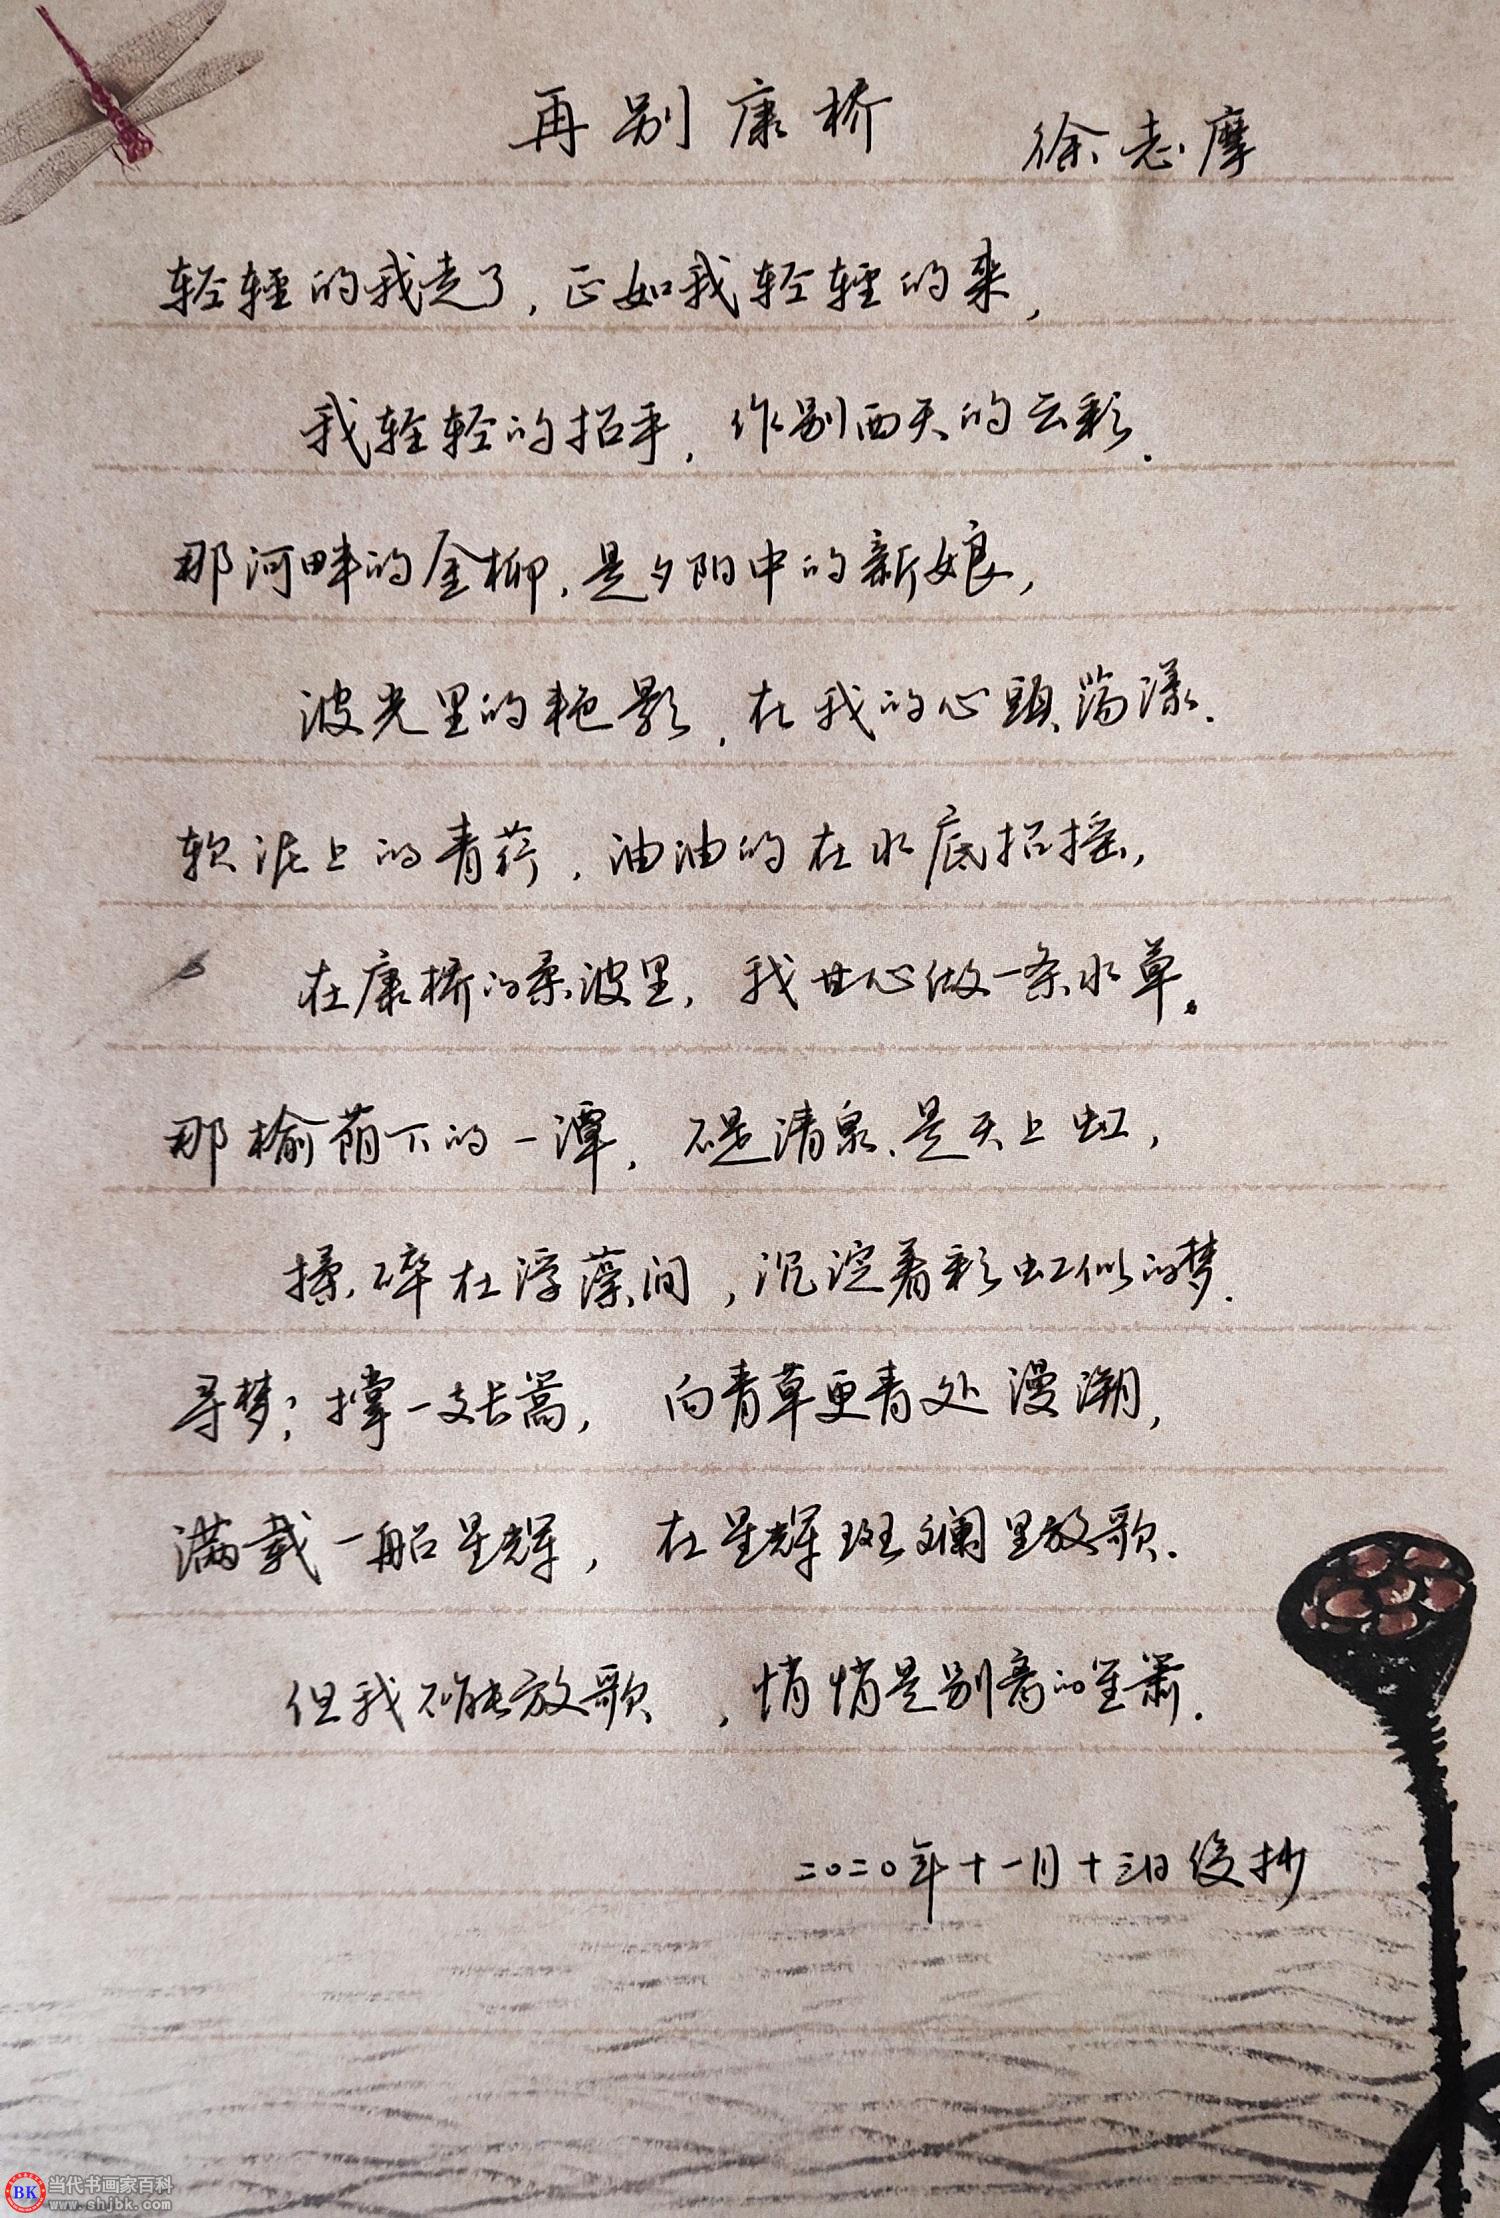 再别康桥 徐志摩
轻輕的我走了,正如我轻輕的来,
我轻轻的招手,作别西天的云彩.
那河畔的金柳,是夕阳中的新娘,
波光里的艳影,在我的心頭荡漾.
软泥上的青荇,油油的在水底招摇,
在康桥的柔波里,我甘心做一条水草。
那榆荫下的一潭,不是清泉、是天上虹,
揉碎在浮藻间,沉淀着彩虹似的梦.
寻梦;撑一支长蒿,向青草更青处漫溯,
满载一船星辉,在星辉斑斓里放歌.
但我不能放歌,悄悄是别离的笙萧.
二〇二〇年十一月十三日俊抄
BK 当代书画家百科
www.shjbk.com